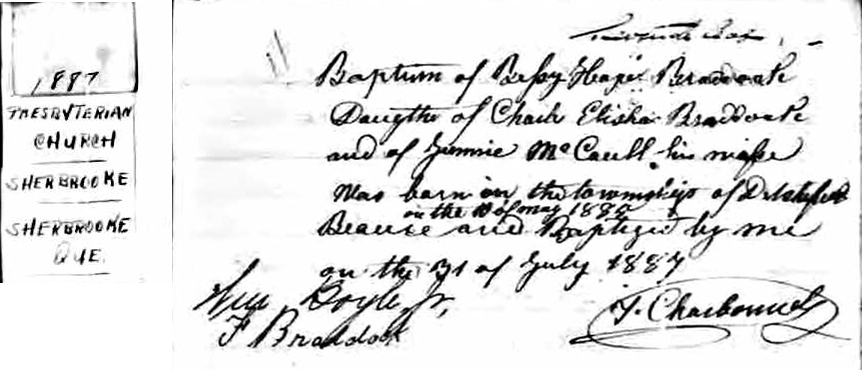 1887
PRESBYTERIAN
CHURCH
SHERBROOKE
SHERBROOKE
QUE.
Baptism of Bessy Braddock
Daugthe of Elisha Braddock
and of Jennie McCaull his wife
Was born in the townships of
on the 10 of may
Beauce and Baptized by me
on the 31 of July 1887
Wm Doyle Jr,
F Braddock
T. Charbonnel